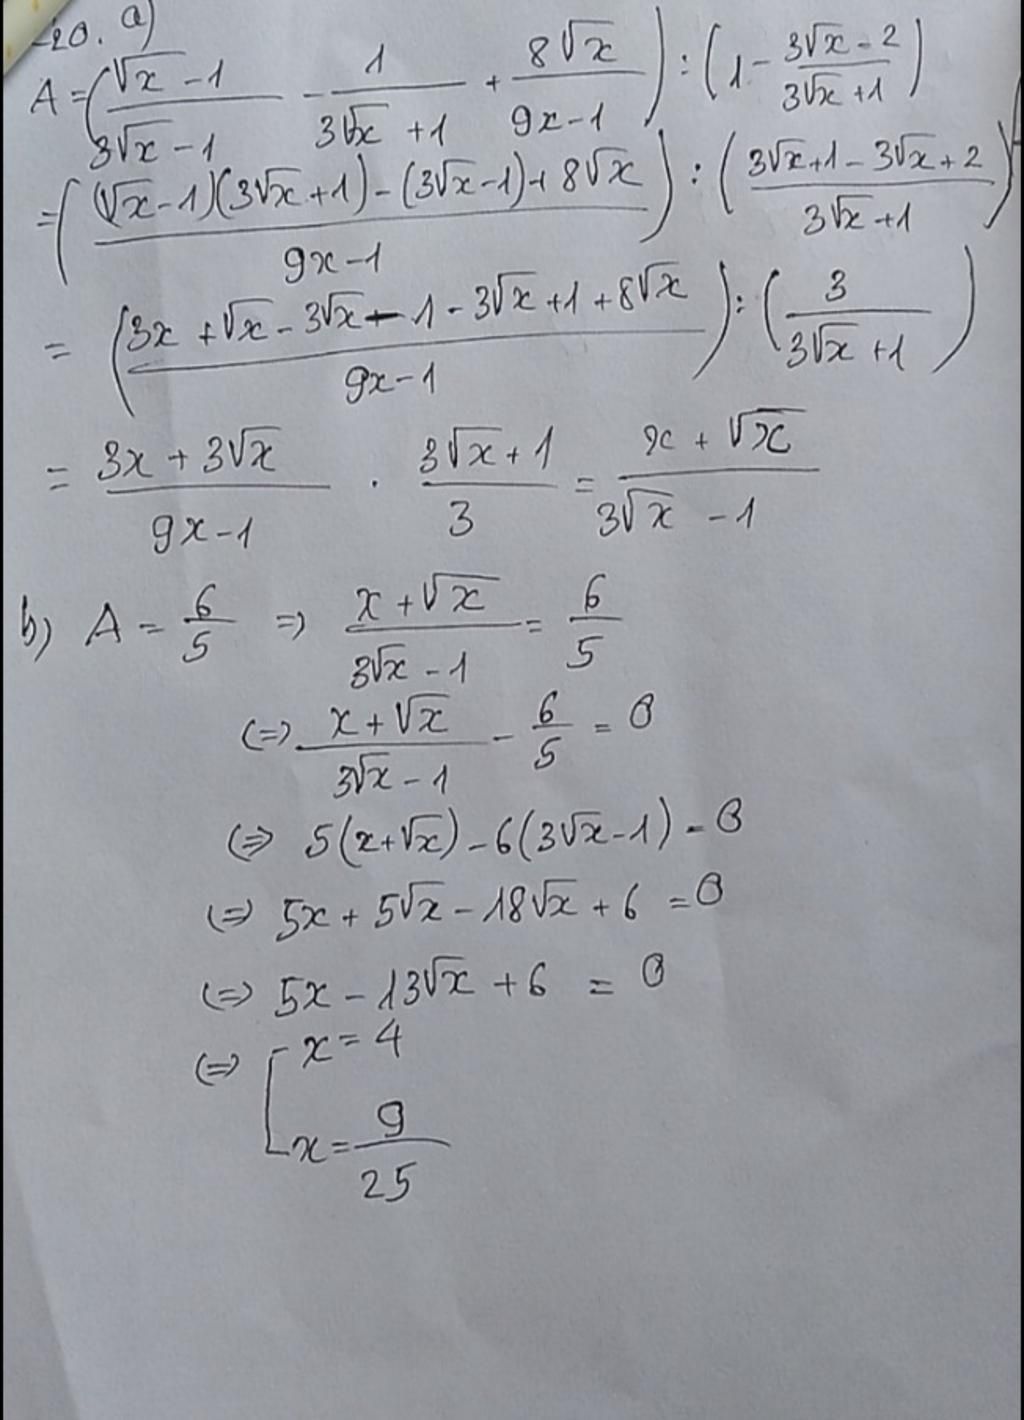 20. a)
A = ( (√x - 1)/(3√x - 1) - 1/(3√x + 1) + 8√x/(9x - 1) ) : ( 1 - (3√x - 2)/(3√x + 1) )
= ( ((√x - 1)(3√x + 1) - (3√x - 1) + 8√x)/(9x - 1) ) : ( (3√x + 1 - 3√x + 2)/(3√x + 1) )
= ( (3x + √x - 3√x - 1 - 3√x + 1 + 8√x)/(9x - 1) ) : ( 3/(3√x + 1) )
= (3x + 3√x)/(9x - 1) . (3√x + 1)/3 = (x + √x)/(3√x - 1)
b) A = 6/5 => (x + √x)/(3√x - 1) = 6/5
(=) (x + √x)/(3√x - 1) - 6/5 = 0
(=) 5(x + √x) - 6(3√x - 1) = 0
(=) 5x + 5√x - 18√x + 6 = 0
(=) 5x - 13√x + 6 = 0
(=) [ x = 4
x = 9/25